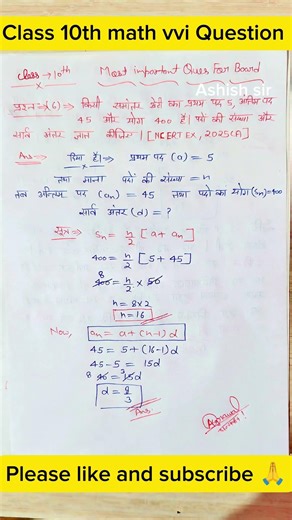 Class 10th math vvi Question
Class → 10th Most important Ques For Board
Ashish sir
प्रश्न-(6) → किसी समांतर श्रेढी का प्रथम पद 5, अंतिम पद
45 और योग 400 है। पदों की संख्या और
सार्व अंतर ज्ञात कीजिए। [NCERT EX, 2025(A)]
Ans → दिया है। → प्रथम पद (a) = 5
तथा माना पदों की संख्या = n
तब अन्तिम पद (an) = 45 तथा पदों का योग (Sn)=400
सार्व अंतर (d) = ?
सूत्र → Sn = n/2 [a + an]
400 = n/2 [5 + 45]
8
400 = n/2 × 50
n = 8×2
n = 16
Now, an = a + (n-1)d
45 = 5 + (16-1)d
45 - 5 = 15d
8 40 = 3 15d
d = 8/3
Ans
Please like and subscribe 🙏